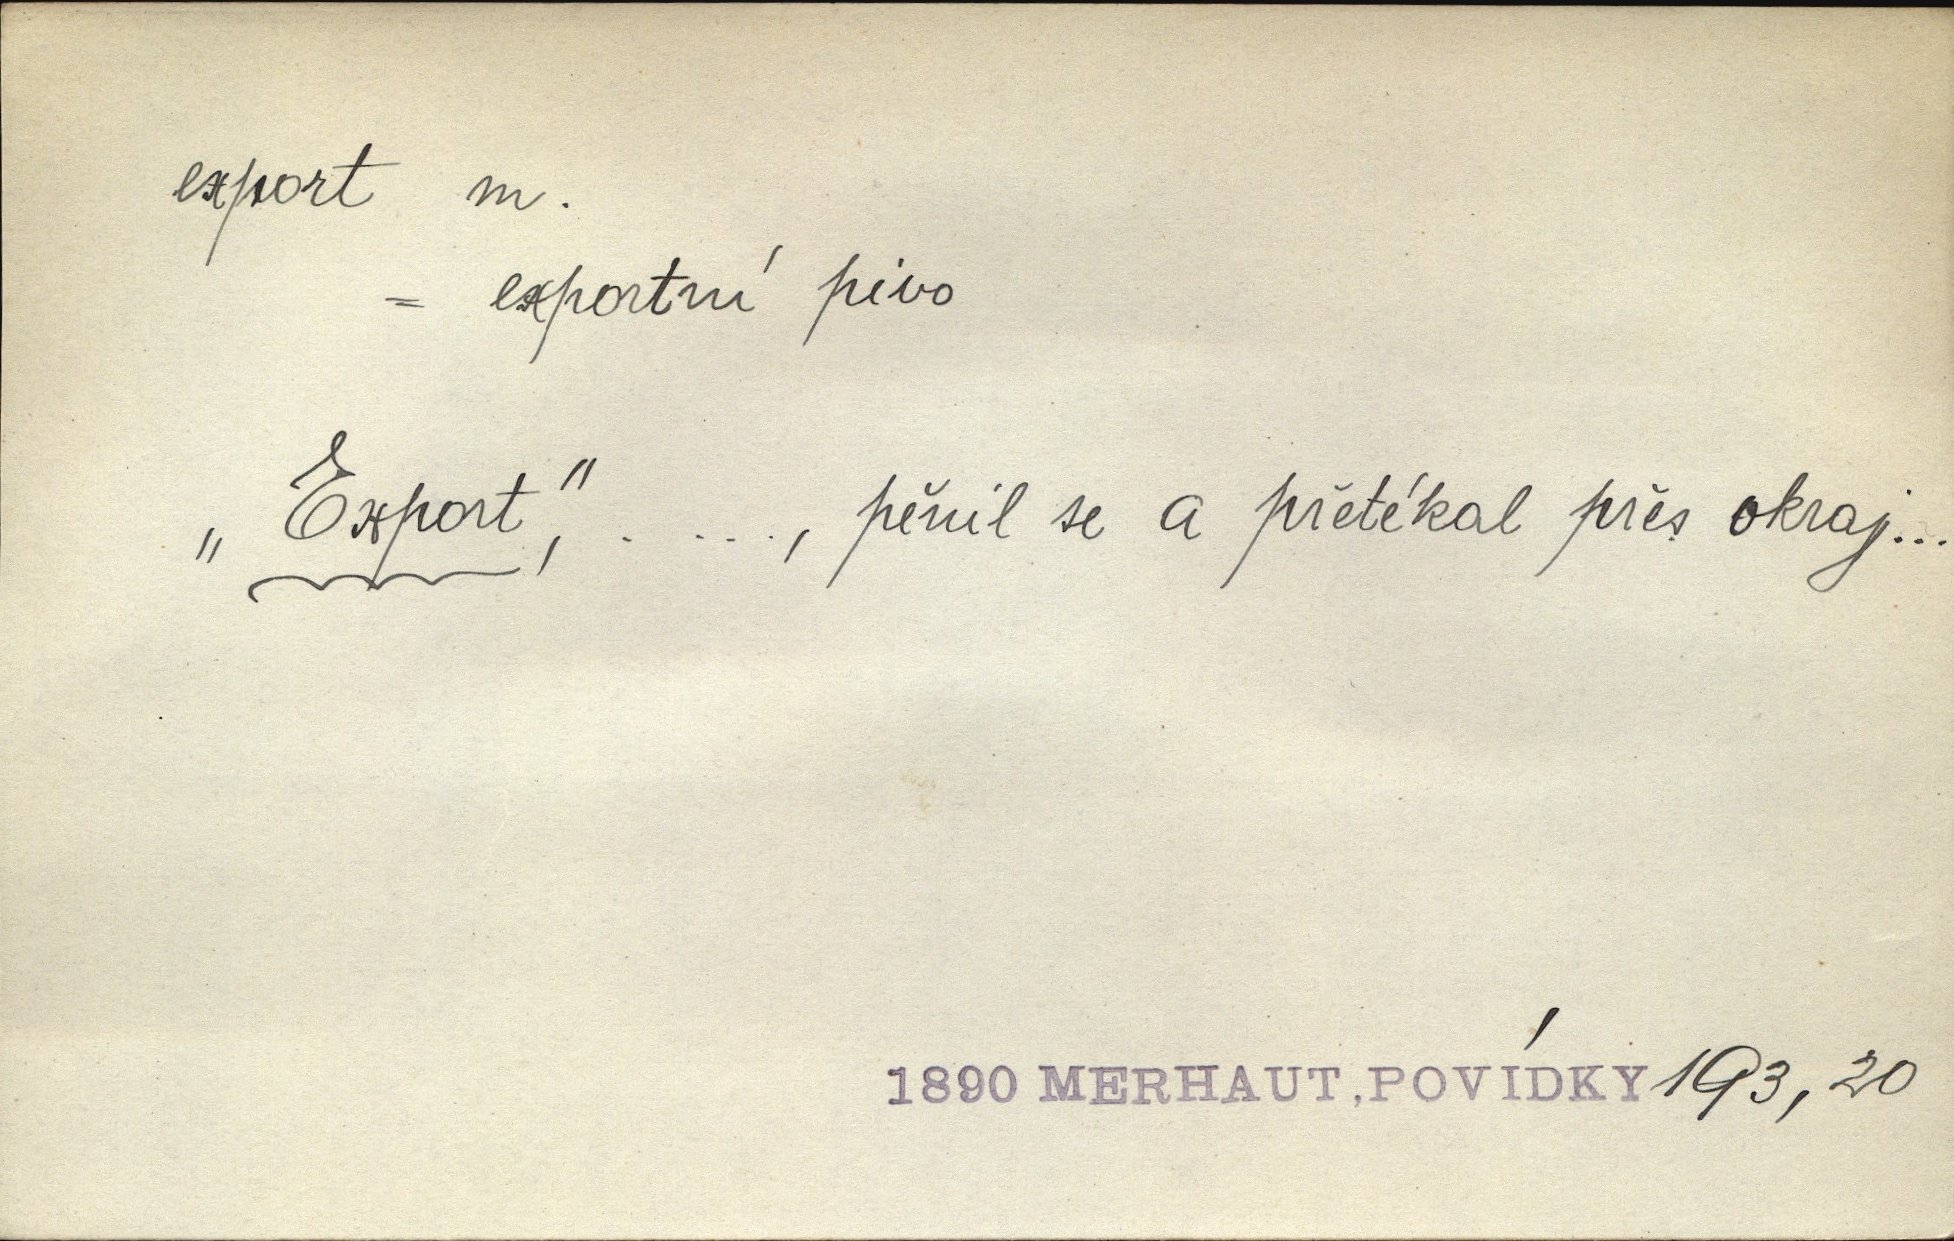 export m.
= exportní pivo
„Export“, . ..., pěnil se a přetékal přes okraj...
1890 MERHAUT, POVÍDKY 193, 20